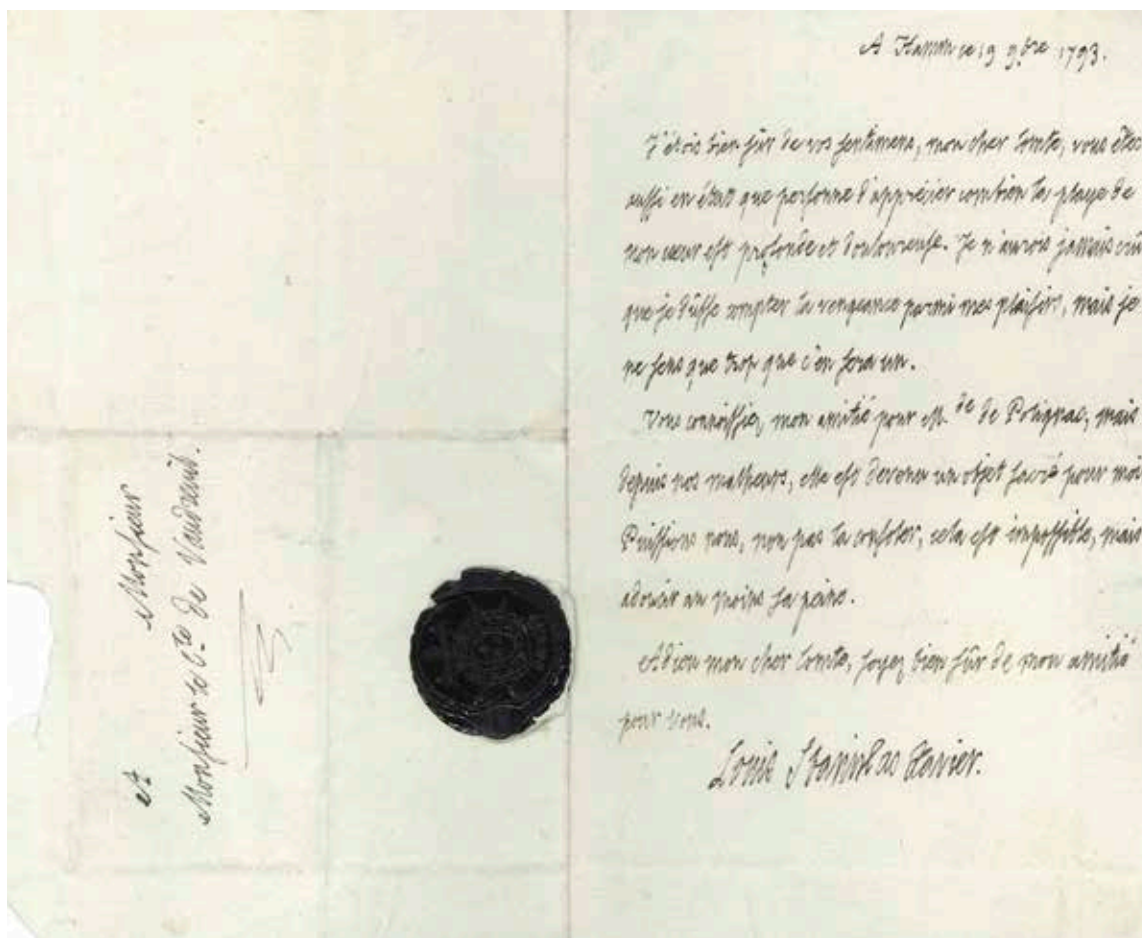 A Hamm ce 19 9bre 1793.
J'étois bien sûr de vos sentimens, mon cher Comte, vous êtes
aussi en état que personne d'apprécier combien la playe de
mon cœur est profonde et douloureuse. Je n'aurois jamais crû
que je dusse compter la vengeance parmi mes plaisirs, mais je
ne sens que trop que c'en sera un.
Vous connoissiez mon amitié pour M.de de Polignac, mais
depuis nos malheurs, elle est devenue un objet sacré pour moi
Puissions nous, non pas la consoler, cela est impossible, mais
adoucir au moins sa peine.
Adieu mon cher Comte, soyez bien sûr de mon amitié
pour vous.
Louis Stanislas Xavier.
A
Monsieur
Monsieur le Cte de Vaudreuil.